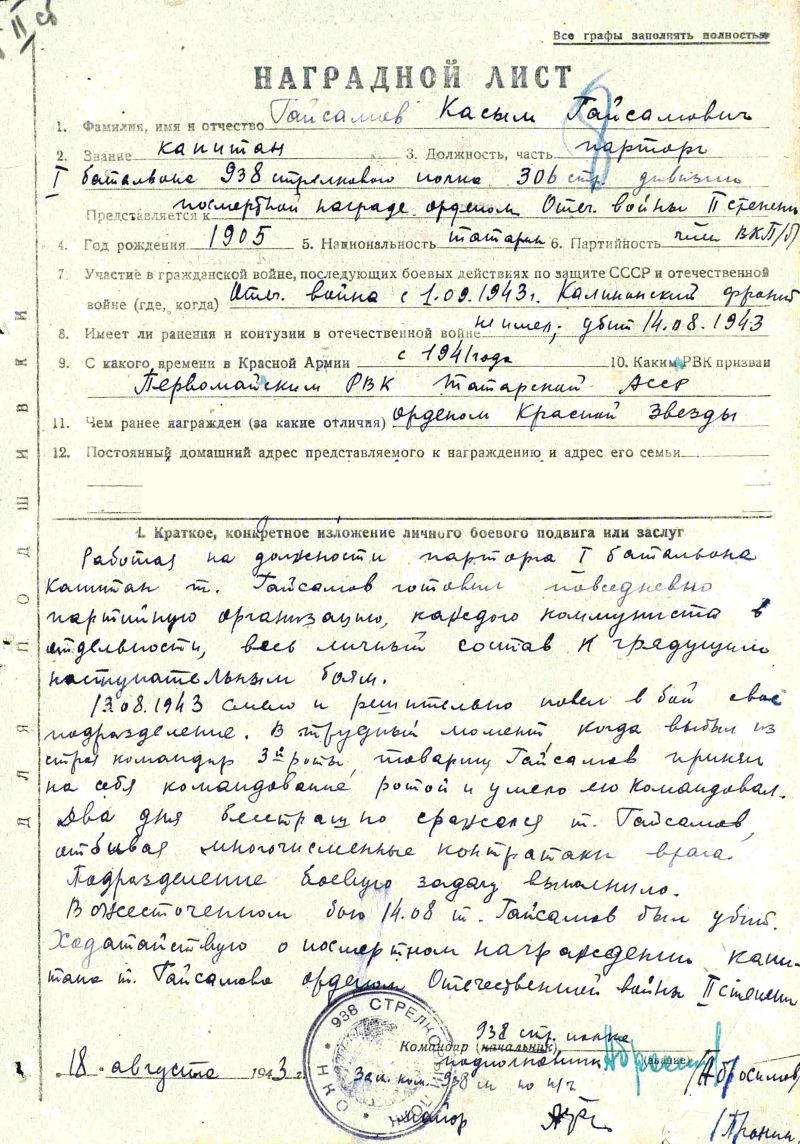 II сб
Все графы заполнять полностью
НАГРАДНОЙ ЛИСТ
1. Фамилия, имя и отчество Гайсамов Касым Гайсамович
2. Звание капитан 3. Должность, часть парторг
I батальона 938 стрелкового полка 306 стр. дивизии
Представляется к посмертной награде орденом Отеч. войны II степени
4. Год рождения 1905 5. Национальность татарин 6. Партийность член ВКП/б/
7. Участие в гражданской войне, последующих боевых действиях по защите СССР и отечественной
войне (где, когда) Отеч. война с 1.09.1943г. Калининский фронт
8. Имеет ли ранения и контузии в отечественной войне не имел, убит 14.08.1943
9. С какого времени в Красной Армии с 1941 года 10. Каким РВК призван
Первомайским РВК Татарской АССР
11. Чем ранее награжден (за какие отличия) орденом Красной Звезды
12. Постоянный домашний адрес представляемого к награждению и адрес его семьи
1. Краткое, конкретное изложение личного боевого подвига или заслуг
Работая на должности парторга I батальона
капитан т. Гайсамов готовил повседневно
партийную организацию, каждого коммуниста в
отдельности, весь личный состав к грядущим
наступательным боям.
13.08.1943 смело и решительно повел в бой свое
подразделение. В трудный момент когда выбыл из
строя командир 3й роты, товарищ Гайсамов принял
на себя командование ротой и умело ею командовал.
Два дня бесстрашно сражался т. Гайсамов,
отбивая многочисленные контратаки врага.
Подразделение боевую задачу выполнило.
В ожесточенном бою 14.08 т. Гайсамов был убит.
Ходатайствую о посмертном награждении капи-
тана т. Гайсамова орденом Отечественной войны II степени
938 стр. полка
Командир (начальник)
подполковник (звание) /Абросимов/
18 августа 1943 г.
Зам. ком. 938 сп по п/ч
майор /Пронин/
938 СТРЕЛКОВЫЙ ПОЛК * НКО *
ДЛЯ ПОДШИВКИ